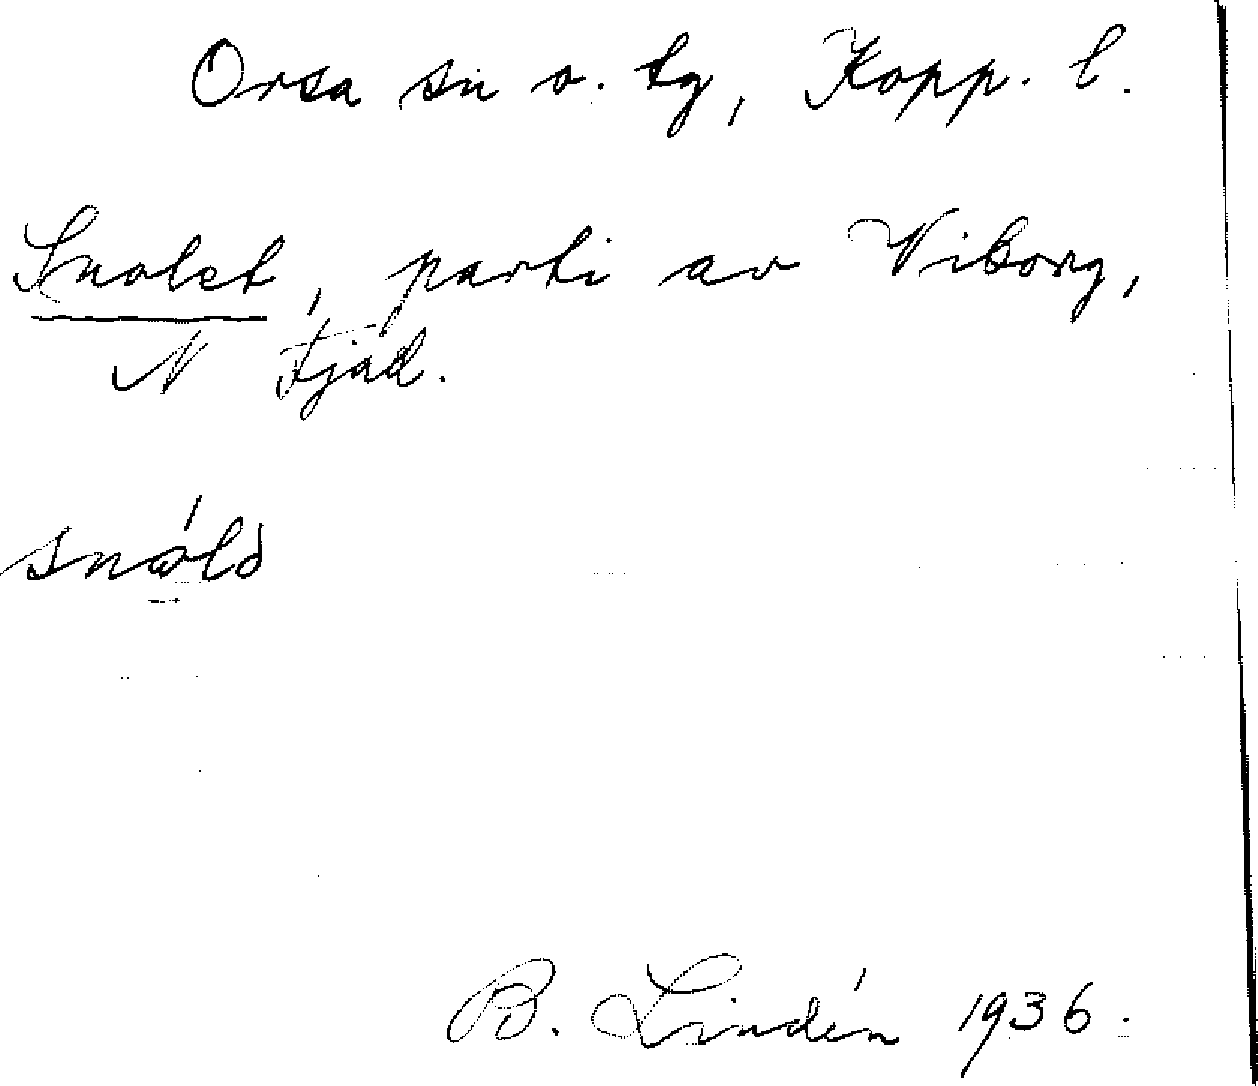 Orsa sn o. tg, Kopp. l.
Snolet, parti av Viborg,
N Fjäd.
B. Lindén 1936.